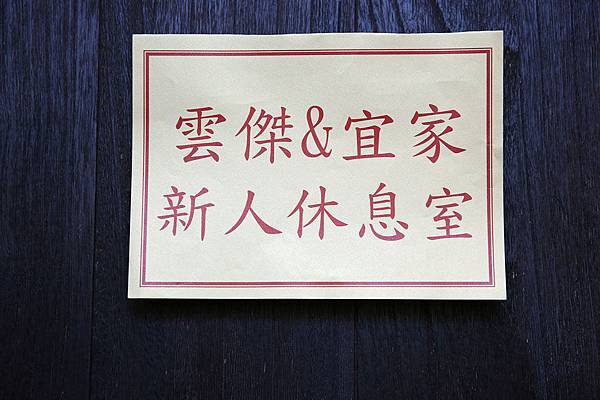 雲傑&宜家
新人休息室